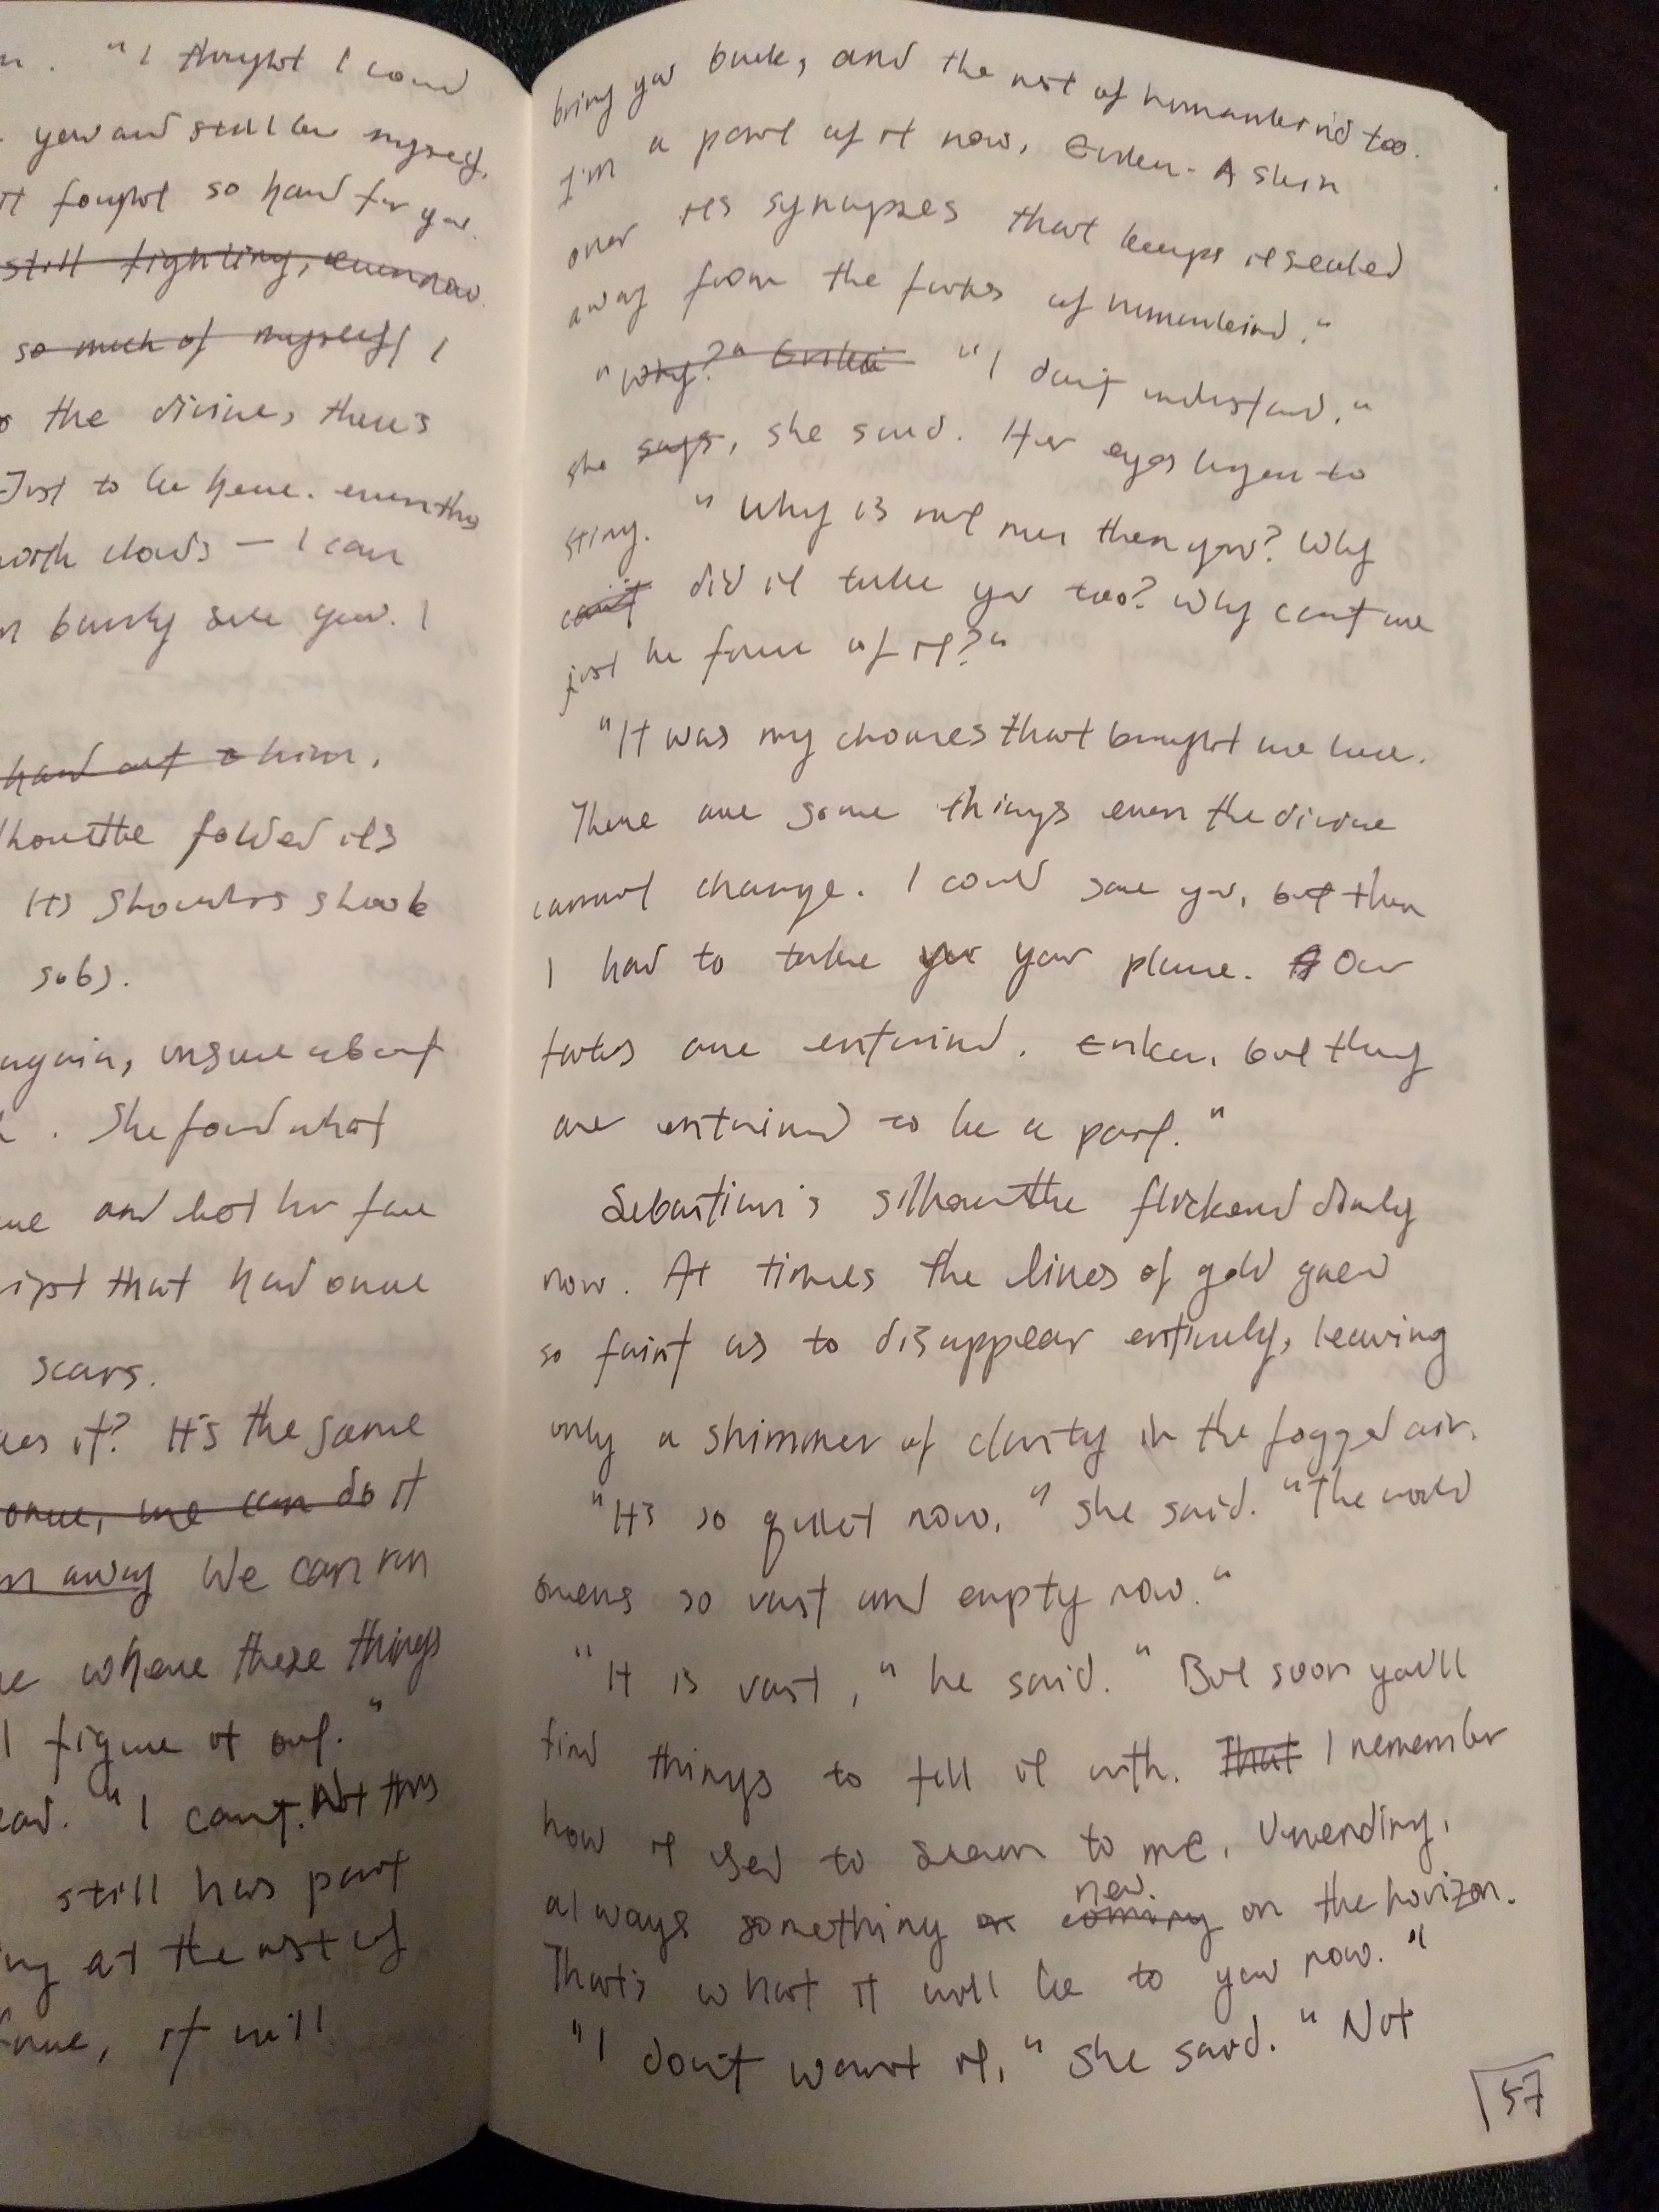 . "I thought I could
you and still be myself,
it fought so hard for you.
still fighting, even now
so much of myself, I
the divine, there's
Just to be here. even this
clouds — I can
barely see you. I
hand out to him,
folded its
Its shoulders shook
sobs.
again, unsure about
. She found what
and hot her face
that had once
scars.
it? It's the same
once, we can do it
away We can run
where these things
I figure it out."
"I can't. Not this
still has part
at the rest of
, it will
bring you back, and the rest of humankind too.
I'm a part of it now, Erika. A skin
over its synapses that keeps it sealed
away from the fates of humankind."
"Why?" Erika "I don't understand,"
she says, she said. Her eyes began to
sting. "Why is not me then you? Why
can't did it take you too? Why can't we
just be free of it?"
"It was my choices that brought me here.
There are some things even the divine
cannot change. I could save you, but then
I had to take your place. Our
fates are entwined. Erika, but they
are entwined to be a part."
Sebastian's silhouette flickered dimly
now. At times the lines of gold grew
so faint as to disappear entirely, leaving
only a shimmer of clarity in the fogged air.
"It's so quiet now," she said. "The world
seems so vast and empty now."
"It is vast," he said. "But soon you'll
find things to fill it with. That I remember
how it used to seem to me. Unending,
always something coming new. on the horizon.
That's what it will be to you now."
"I don't want it," she said. "Not
57